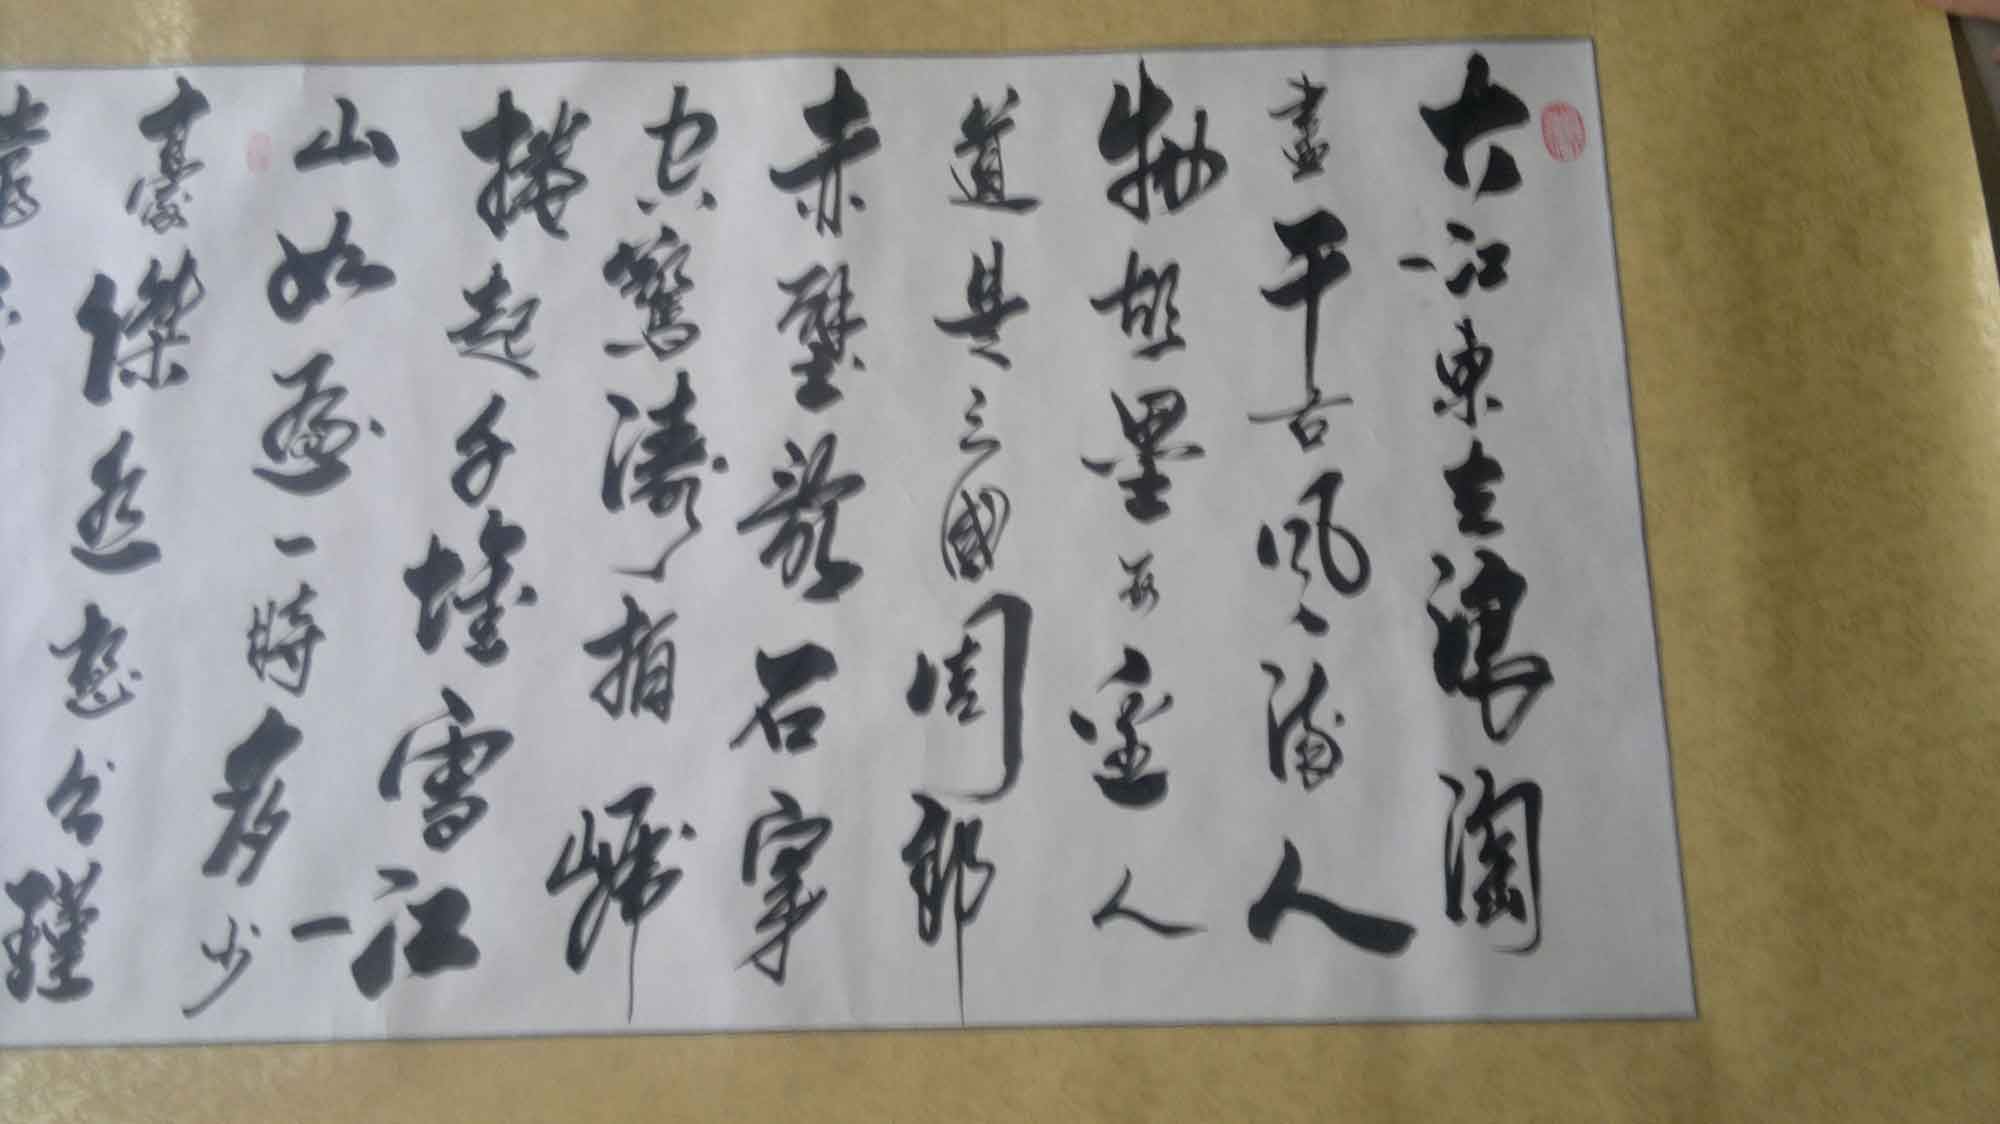 大江東去浪淘
盡千古風流人
物故壘西邊人
道是三國周郎
赤壁亂石穿
空驚濤拍岸
捲起千堆雪江
山如畫一時多少
豪傑遙想公瑾